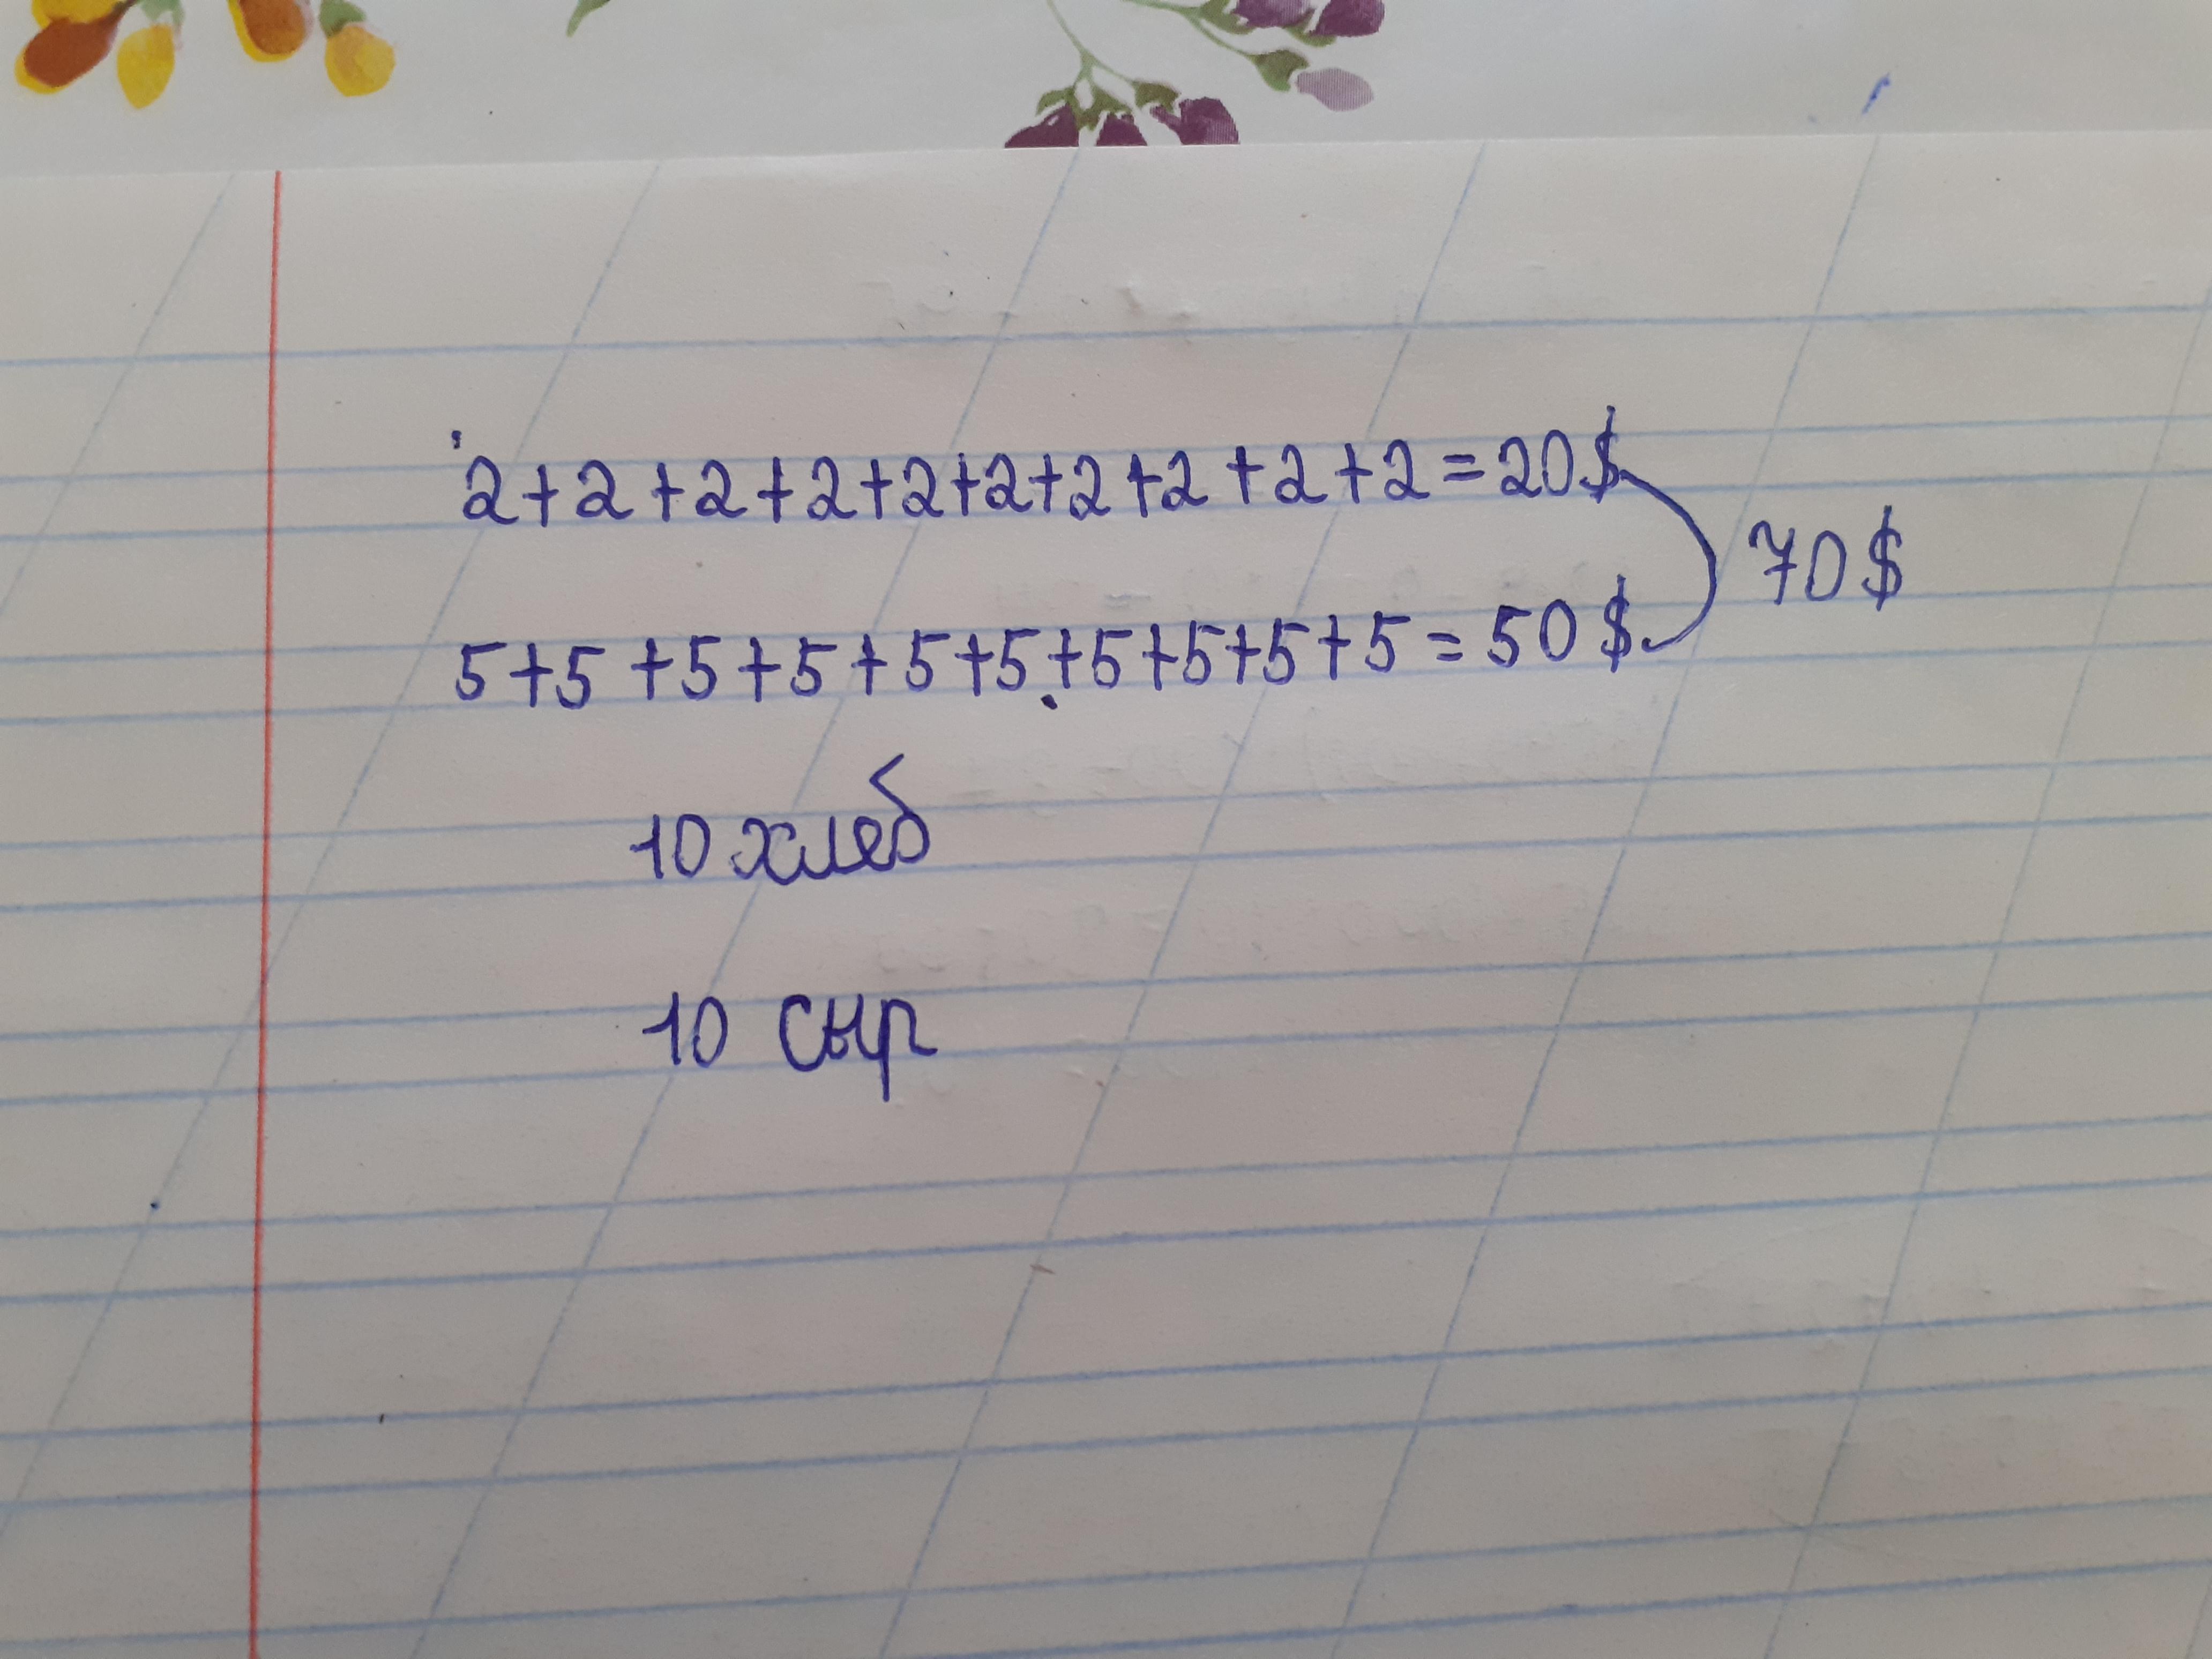 2+2+2+2+2+2+2+2+2+2=20$
70$
5+5+5+5+5+5+5+5+5+5=50$
10 хлеб
10 сыр